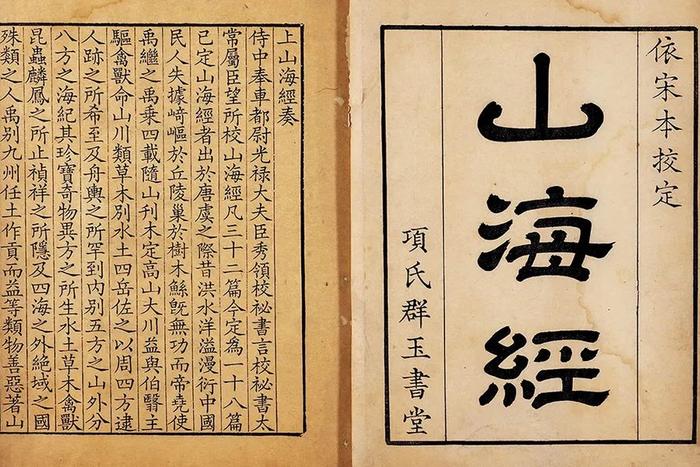 依宋本挍定
山海經
項氏群玉書堂
上山海經奏
侍中奉車都尉光祿大夫臣秀領校祕書言校祕書太
常屬臣望所校山海經凡三十二篇今定爲一十八篇
已定山海經者出於唐虞之際昔洪水洋溢漫衍中國
民人失據崎嶇於丘陵巢於樹木鯀旣無功而帝堯使
禹繼之禹乘四載隨山刊木定高山大川益與伯翳主
驅禽獸命山川類草木別水土四岳佐之以周四方逮
人跡之所希至及舟輿之所罕到內別五方之山外分
八方之海紀其珍寶奇物異方之所生水土草木禽獸
昆蟲麟鳳之所止禎祥之所隱及四海之外絶域之國
殊類之人禹別九州任土作貢而益等類物善惡著山